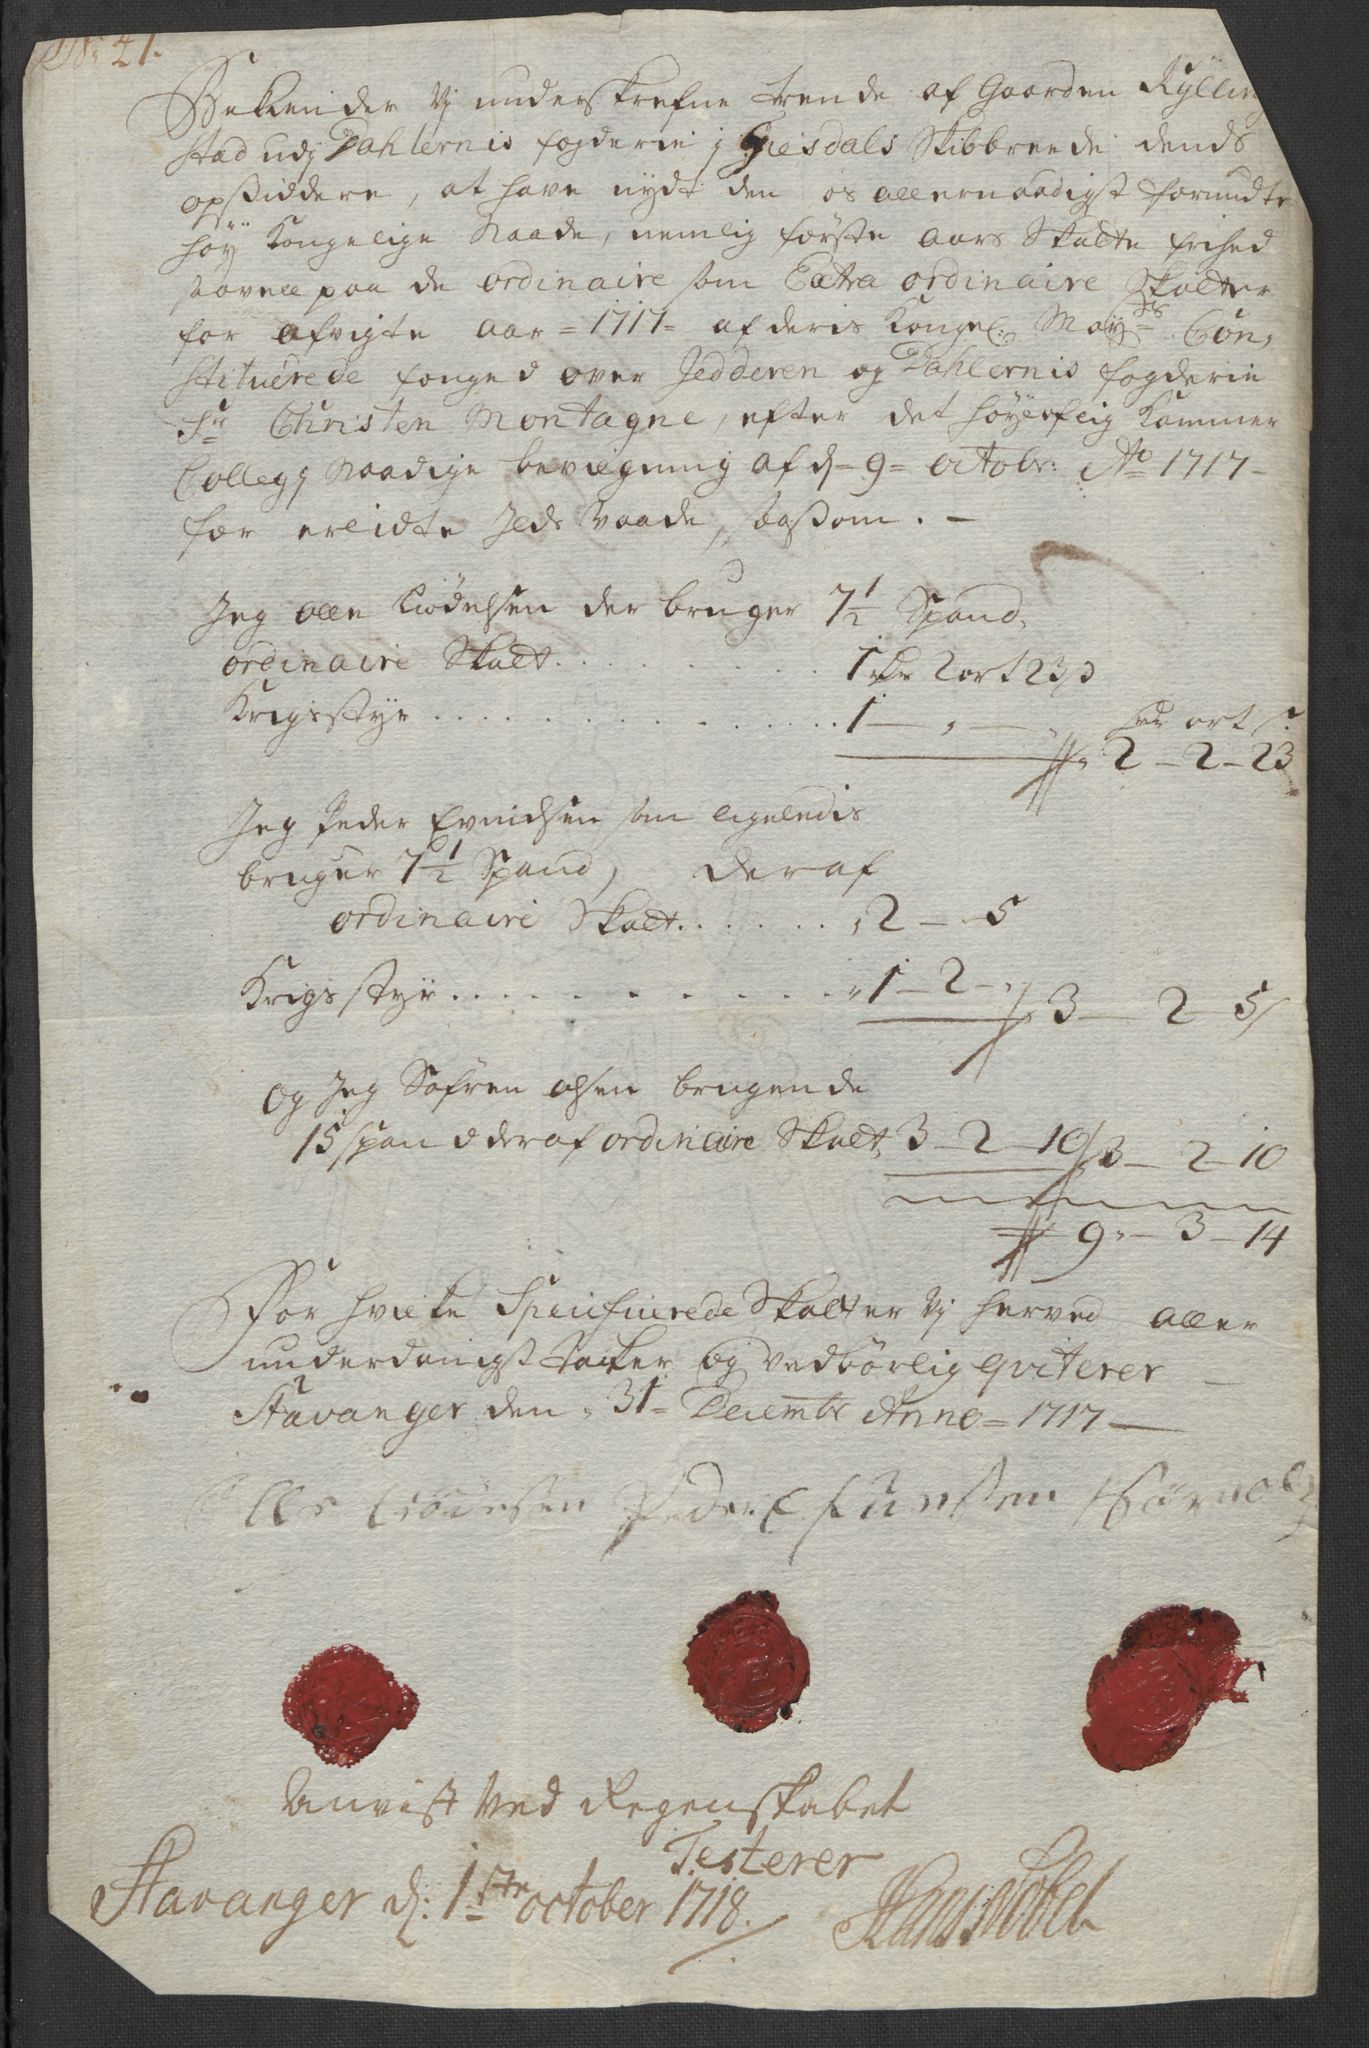 No 21.
Bekiender Vj underskrefne trende af Gaarden Rylling
stad udj Dahlernis fogderie j Giesdals Skibbreede dends
opsiddere, at have nydt den os allernaadigst forundte
høy Kongelige Naade, nemlig første aars Skatte frihed
saavell paa de ordinaire som Extra ordinaire Skatter
for afvigte aar = 1717 = af deris Kongel: May: ts Con,
stituerede fouged over Jedderen og Dahlernis fogderie
Sr Christen Montagne, efter det høylofl: Kammer
Collegj Naadige bevilgning af d - 9 = octobr: Ao 1717 -
for erlidte Jlds Vaade, saasom. -
Jeg olle Liødelsen der bruger 7 1/2 Spand,
ordinaire Skatt . . . . . . . . . 1 rdr 2 ort 23 s
Krigsstyr . . . . . . . . . . . . . 1 — , — , rdr ort s.
2 — 2 — 23
Jeg Peder Evindsen som ligeledis
bruger 7 1/2 Spand, deraf
ordinaire Skatt . . . . . . , 2 — 5
Krigsstyr . . . . . . . . . . . „ 1 — 2 — „ 3 — 2 — 5
Og Jeg Søfren olsen brugende
15 spand deraf ordinaire Skatt, 3 — 2 — 10 3 — 2 — 10
9 „ — 3 — 14
For hvilke Specificerede Skatter Vj herved aller
underdanigst tacker og vedbørlig qviterer —
Stavanger den „ 31 = Decembr Anno = 1717 —
Olle Liødesen Peder
Anvist Ved Regenskabet
Testerer
Stavanger d: 1ste october 1718. Hans Nobel